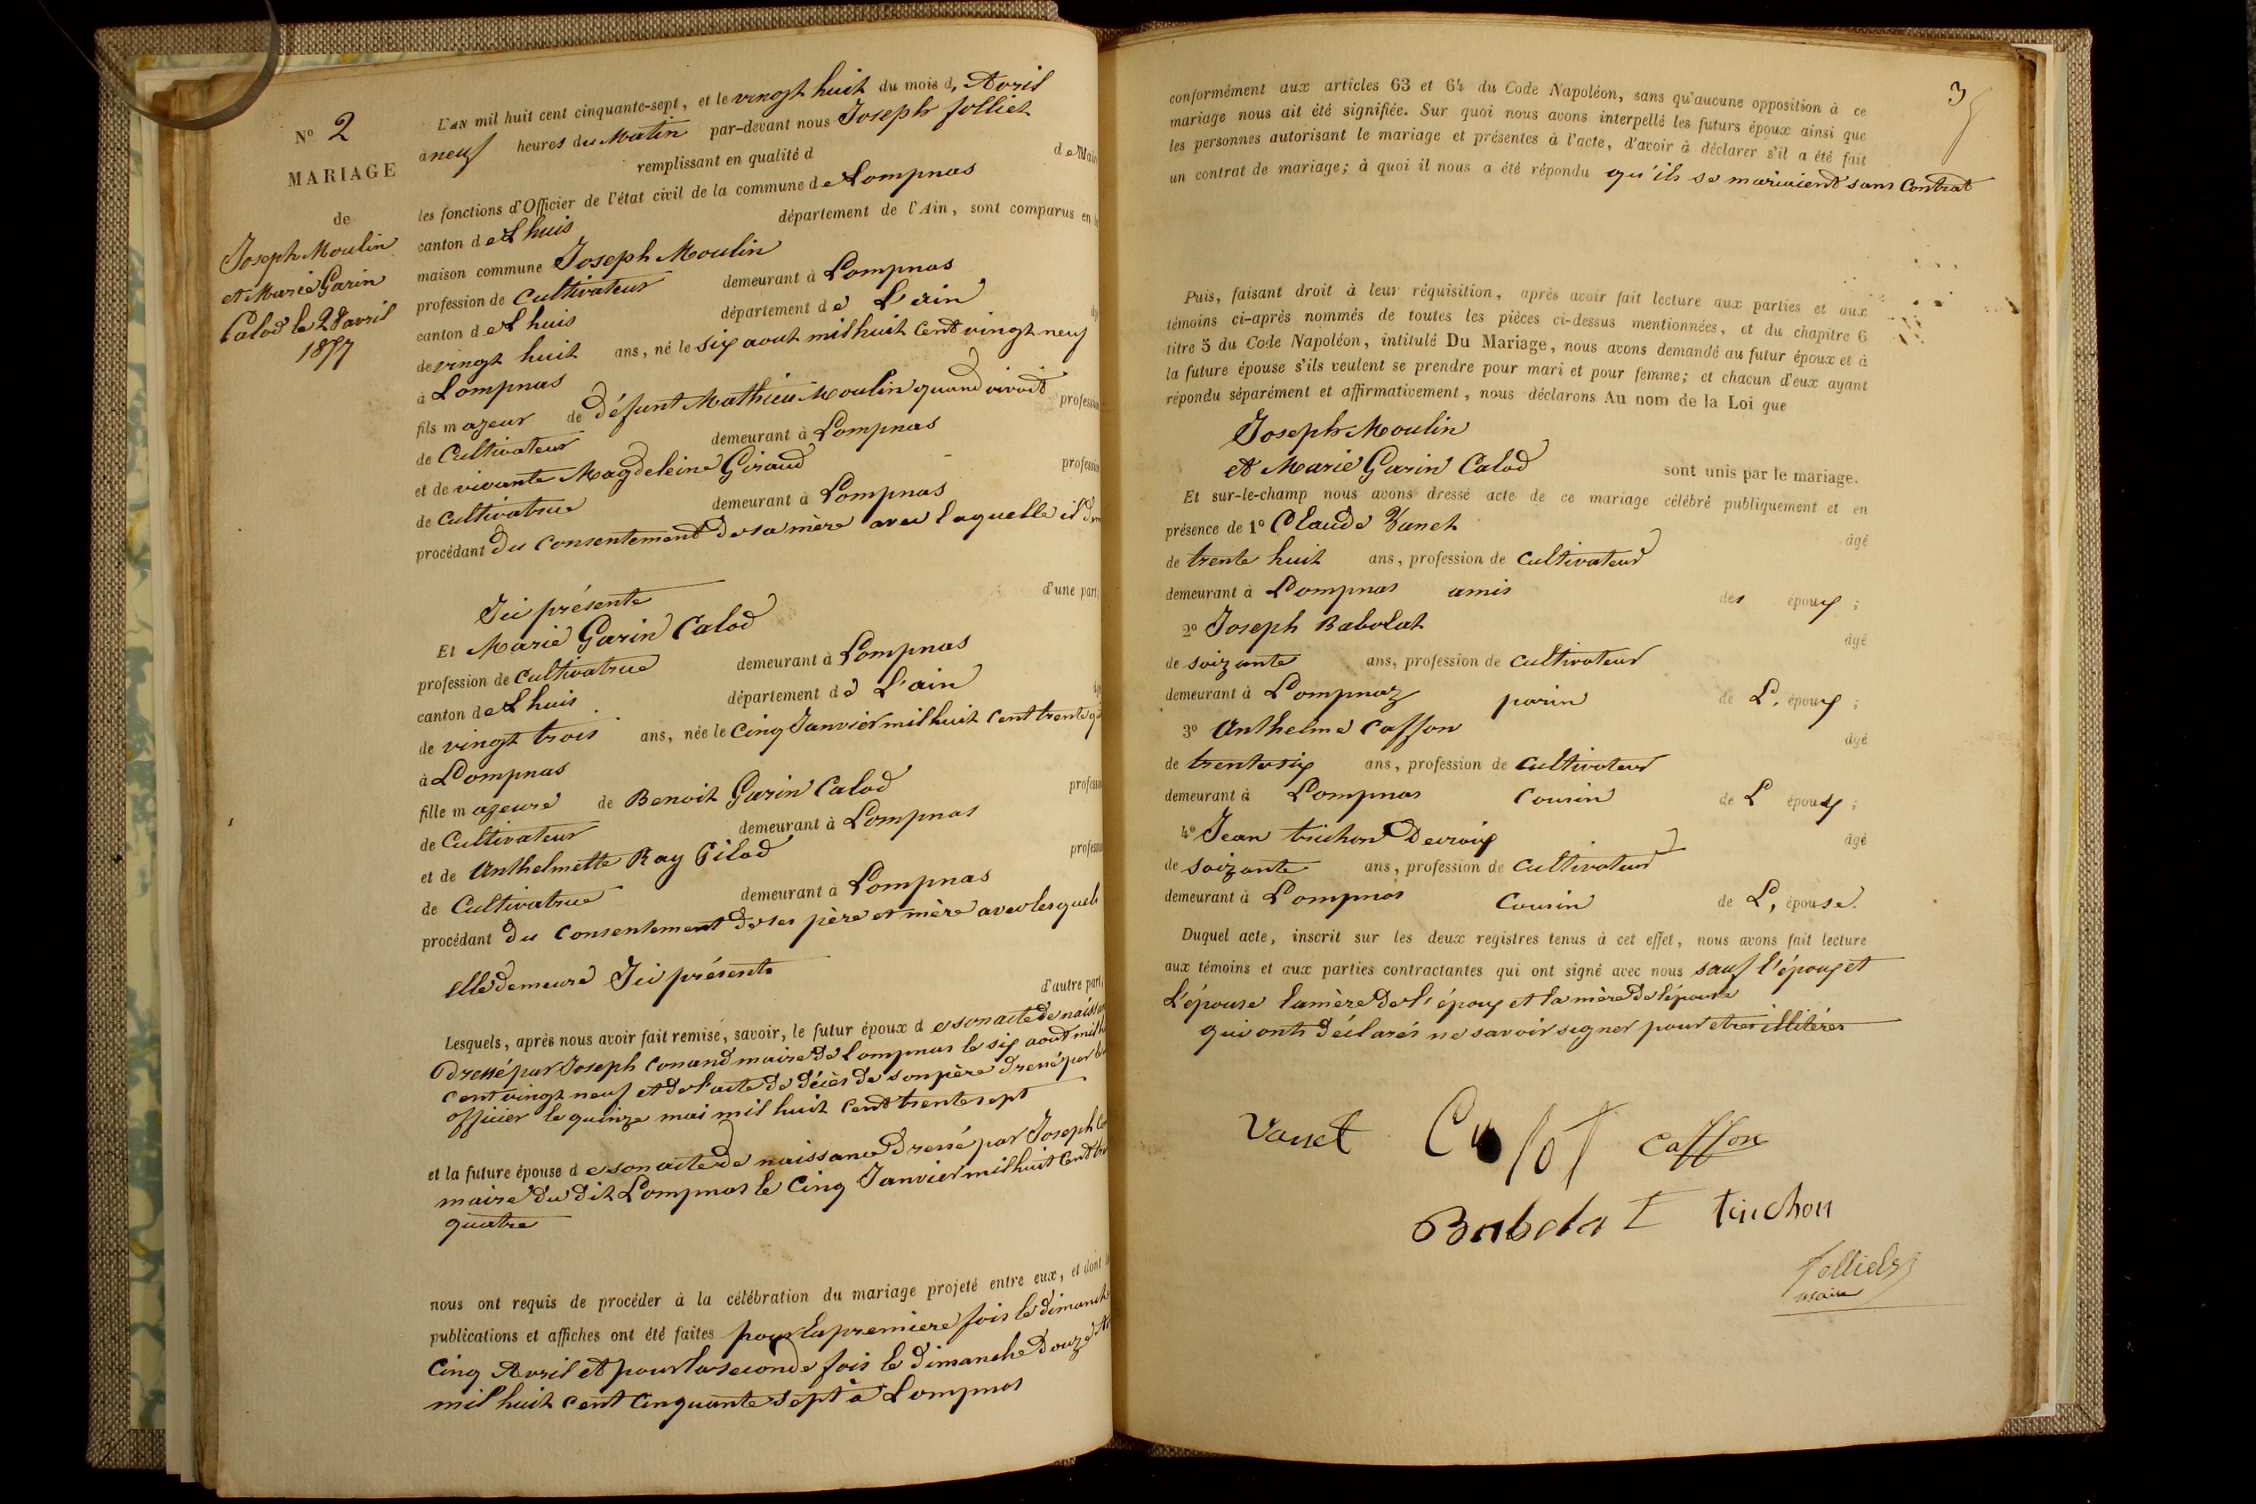 N° 2
MARIAGE
de
Joseph Moulin
et Marie Garin
Calod le 28 avril
1857
L'AN mil huit cent cinquante-sept, et le vingt huit du mois d, Avril
à neuf heures du Matin par-devant nous Joseph Jolliet
remplissant en qualité d de Mair
les fonctions d'Officier de l'état civil de la commune de Lompnas
canton de Lhuis département de l'Ain, sont comparus en la
maison commune Joseph Moulin
profession de Cultivateur demeurant à Lompnas
canton de Lhuis département de L'ain
de vingt huit ans, né le six aout mil huit Cent vingt neuf
à Lompnas
fils mageur de défunt Mathieu Moulin quand vivait profession
de Cultivateur demeurant à Lompnas
et de vivante Magdeleine Giraud profession
de Cultivatrice demeurant à Lompnas
procédant du consentement de sa mère avec laquelle il
Ici présente d'une part,
Et Marie Garin Calod
profession de Cultivatrice demeurant à Lompnas
canton de Lhuis département de L'ain
de vingt trois ans, née le Cinq Janvier mil huit Cent trente
à Lompnas
fille mageure de Benoit Garin Calod profession
de Cultivateur demeurant à Lompnas
et de Anthelmette Ray Pilod profession
de Cultivatrice demeurant à Lompnas
procédant du consentement de ses père et mère avec lesquels
elle demeure Ici présente d'autre part,
Lesquels, après nous avoir fait remise, savoir, le futur époux de son acte de naissan
Dressé par Joseph Conand maire de Lompnas le six aout mil
cent vingt neuf et de l'acte de décès de son père dressé par
officier le quinze mai mil huit Cent trente sept
et la future épouse de son acte de naissance Dressé par Joseph
maire du dit Lompnas le Cinq Janvier mil huit Cent
quatre
nous ont requis de procéder à la célébration du mariage projeté entre eux, et dont
publications et affiches ont été faites pour la premiere fois le dimanche
Cinq Avril et pour la seconde fois le dimanche Douze
mil huit cent Cinquante Sept à Lompnas
3
conformément aux articles 63 et 64 du Code Napoléon, sans qu'aucune opposition à ce
mariage nous ait été signifiée. Sur quoi nous avons interpellé les futurs époux ainsi que
les personnes autorisant le mariage et présentes à l'acte, d'avoir à déclarer s'il a été fait
un contrat de mariage; à quoi il nous a été répondu qu'ils se mariaient sans Contrat
Puis, faisant droit à leur réquisition, après avoir fait lecture aux parties et aux
témoins ci-après nommés de toutes les pièces ci-dessus mentionnées, et du chapitre 6
titre 5 du Code Napoléon, intitulé Du Mariage, nous avons demandé au futur époux et à
la future épouse s'ils veulent se prendre pour mari et pour femme; et chacun d'eux ayant
répondu séparément et affirmativement, nous déclarons Au nom de la Loi que
Joseph Moulin
et Marie Garin Calod sont unis par le mariage.
Et sur-le-champ nous avons dressé acte de ce mariage célébré publiquement et en
présence de 1° Claude Vanet âgé
de trente huit ans, profession de Cultivateur
demeurant à Lompnas amis des époux ;
2° Joseph Babolat âgé
de soizante ans, profession de Cultivateur
demeurant à Lompnaz parin de L, époux ;
3° Anthelme Caffon âgé
de trente six ans, profession de Cultivateur
demeurant à Lompnas Cousin de L époux ;
4° Jean trichon Devroix âgé
de soizante ans, profession de Cultivateur
demeurant à Lompnas Cousin de L, épouse.
Duquel acte, inscrit sur les deux registres tenus à cet effet, nous avons fait lecture
aux témoins et aux parties contractantes qui ont signé avec nous sauf l'époux et
L'épouse la mère de l'époux et la mère de l'épouse
qui ont déclarés ne savoir signer pour etres illitérés
Vanet Calot Caffon
Babolat trichon
Jolliet
maire